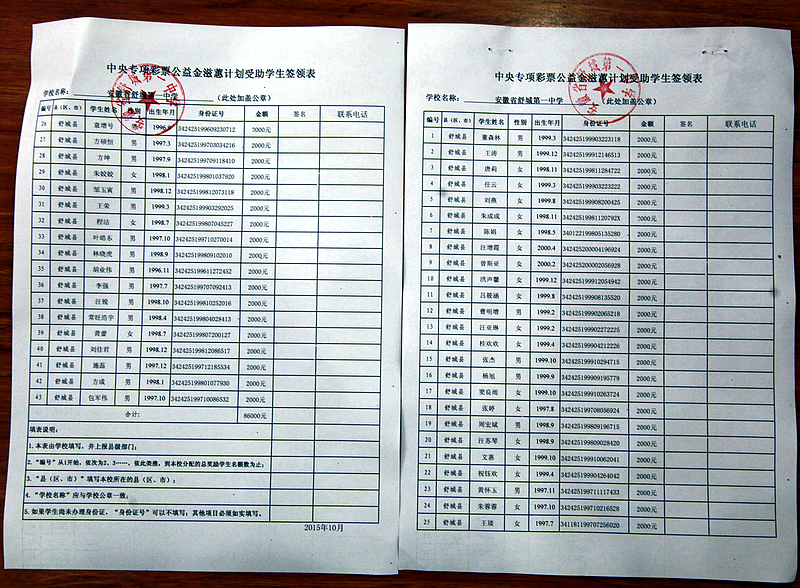 中央专项彩票公益金滋蕙计划受助学生签领表
学校名称: 安徽省舒城第一中学 (此处加盖公章)
编号 县(区、市) 学生姓名 性别 出生年月 身份证号 金额 签名 联系电话
26 舒城县 袁增号 男 1996.9 342425199609230712 2000元
27 舒城县 方硕恒 男 1997.3 342425199703034216 2000元
28 舒城县 方坤 男 1997.9 342425199709118410 2000元
29 舒城县 朱姣姣 女 1998.1 342425199801037920 2000元
30 舒城县 邹玉寅 男 1998.12 342425199812073118 2000元
31 舒城县 王荣 男 1999.3 342425199903292025 2000元
32 舒城县 程沾 女 1998.7 342425199807045227 2000元
33 舒城县 叶皓东 男 1997.10 342425199710270014 2000元
34 舒城县 林晓虎 男 1998.9 342425199809102010 2000元
35 舒城县 胡业伟 男 1996.11 342425199611272452 2000元
36 舒城县 李强 男 1997.7 342425199707092413 2000元
37 舒城县 汪锐 男 1998.10 342425199810252016 2000元
38 舒城县 常旺浩宇 男 1998.4 342425199804028413 2000元
39 舒城县 黄蕾 女 1998.7 342425199807200127 2000元
40 舒城县 刘佳君 男 1998.12 342425199812086517 2000元
41 舒城县 施磊 男 1997.12 342425199712185534 2000元
42 舒城县 方成 男 1998.1 342425199801077930 2000元
43 舒城县 包军伟 男 1997.10 342425199710086532 2000元
合计: 86000元
填表说明:
1.本表由学校填写,并上报县级部门;
2.“编号”从1开始,依次为2、3……,依此类推,到本校分配的总奖励学生名额数为止;
3.“县(区、市)”填写本校所在的县(区、市);
4.“学校名称”应与学校公章一致;
5.如果学生尚未办理身份证,“身份证号”可以不填写;其他项目必须如实填写。
2015年10月
中央专项彩票公益金滋蕙计划受助学生签领表
学校名称: 安徽省舒城第一中学 (此处加盖公章)
编号 县(区、市) 学生姓名 性别 出生年月 身份证号 金额 签名 联系电话
1 舒城县 董森林 男 1999.3 342425199903223118 2000元
2 舒城县 王涛 男 1999.12 342425199912146513 2000元
3 舒城县 唐莉 女 1998.11 342425199811284722 2000元
4 舒城县 任云 女 1999.3 342425199903223222 2000元
5 舒城县 刘燕 女 1999.8 342425199908200425 2000元
6 舒城县 朱成成 女 1998.11 34242519981120792X 2000元
7 舒城县 陈娟 女 1998.5 340122199805135280 2000元
8 舒城县 汪增霞 女 2000.4 342425200004196924 2000元
9 舒城县 曾斯亚 女 2000.2 342425200002056928 2000元
10 舒城县 洪声馨 女 1999.12 342425199912054942 2000元
11 舒城县 吕筱涵 女 1999.8 342425199908135520 2000元
12 舒城县 曹明增 男 1999.2 342425199902065218 2000元
13 舒城县 汪亚琳 女 1999.2 342425199902272225 2000元
14 舒城县 桂欢欢 女 1999.4 342425199904212226 2000元
15 舒城县 张杰 男 1999.10 342425199910294715 2000元
16 舒城县 杨旭 男 1999.9 342425199909195779 2000元
17 舒城县 窦良雨 女 1999.10 342425199910263724 2000元
18 舒城县 张婷 女 1997.8 342425199708056924 2000元
19 舒城县 周宏斌 男 1998.9 342425199809196715 2000元
20 舒城县 汪苏琴 女 1998.9 342425199809028420 2000元
21 舒城县 文惠 女 1999.10 342425199910062041 2000元
22 舒城县 祝钰欢 女 1999.4 342425199904264042 2000元
23 舒城县 黄怀玉 男 1997.11 342425199711117433 2000元
24 舒城县 朱蓉蓉 女 1997.10 342425199710216528 2000元
25 舒城县 王琰 女 1997.7 341181199707256020 2000元